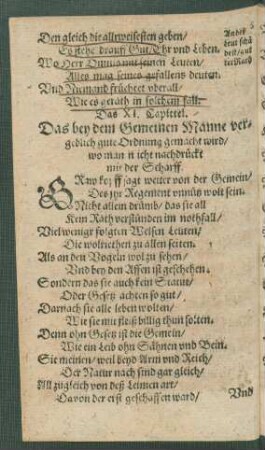 Den gleich die allweisesten geben/
Es stehe drauff Gut/Ehr und Leben.
Wo Herr Omnis mit seinen Leuten/
Alles mag seines gefallens deuten.
Und Niemand früchtet uberall/
Wie es gerath in solchem fall.
Das XI. Capittel.
Das bey dem Gemeinen Manne ver-
geblich gute Ordnung gemacht wird/
wo man nicht nachdrückt
mit der Scharff.
sagt weiter von der Gemein/
Des zur Regement unnütz wolt sein.
Nicht allein drumb/ das sie all
Kein Rath verstünden im nothfall/
Viel wenigr folgten Weisen Leuten/
Die wolriethen zu allen seiten.
Als an den Vogeln wol zu sehen/
Und bey den Affen ist geschehen.
Sondern das sie auch kein Statut/
Oder Gesetz achten so gut/
Darnach sie alle leben wolten/
Wie sie mit fleiß billig thun solten.
Denn ohn Gesetz ist die Gemein/
Wie ein Leib ohn Sähnen und Bein.
Sie meinen/ weil beyd Arm und Reich/
Der Natur nach sind gar gleich/
All zugleich von deß Leimen art/
Davon der erst geschaffen ward/
Und